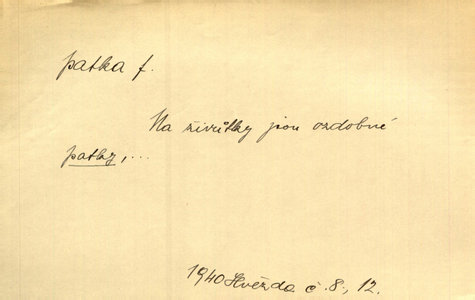 patka f.
Na živůtky jsou ozdobné
patky,...
1940 Hvězda č. 8., 12.